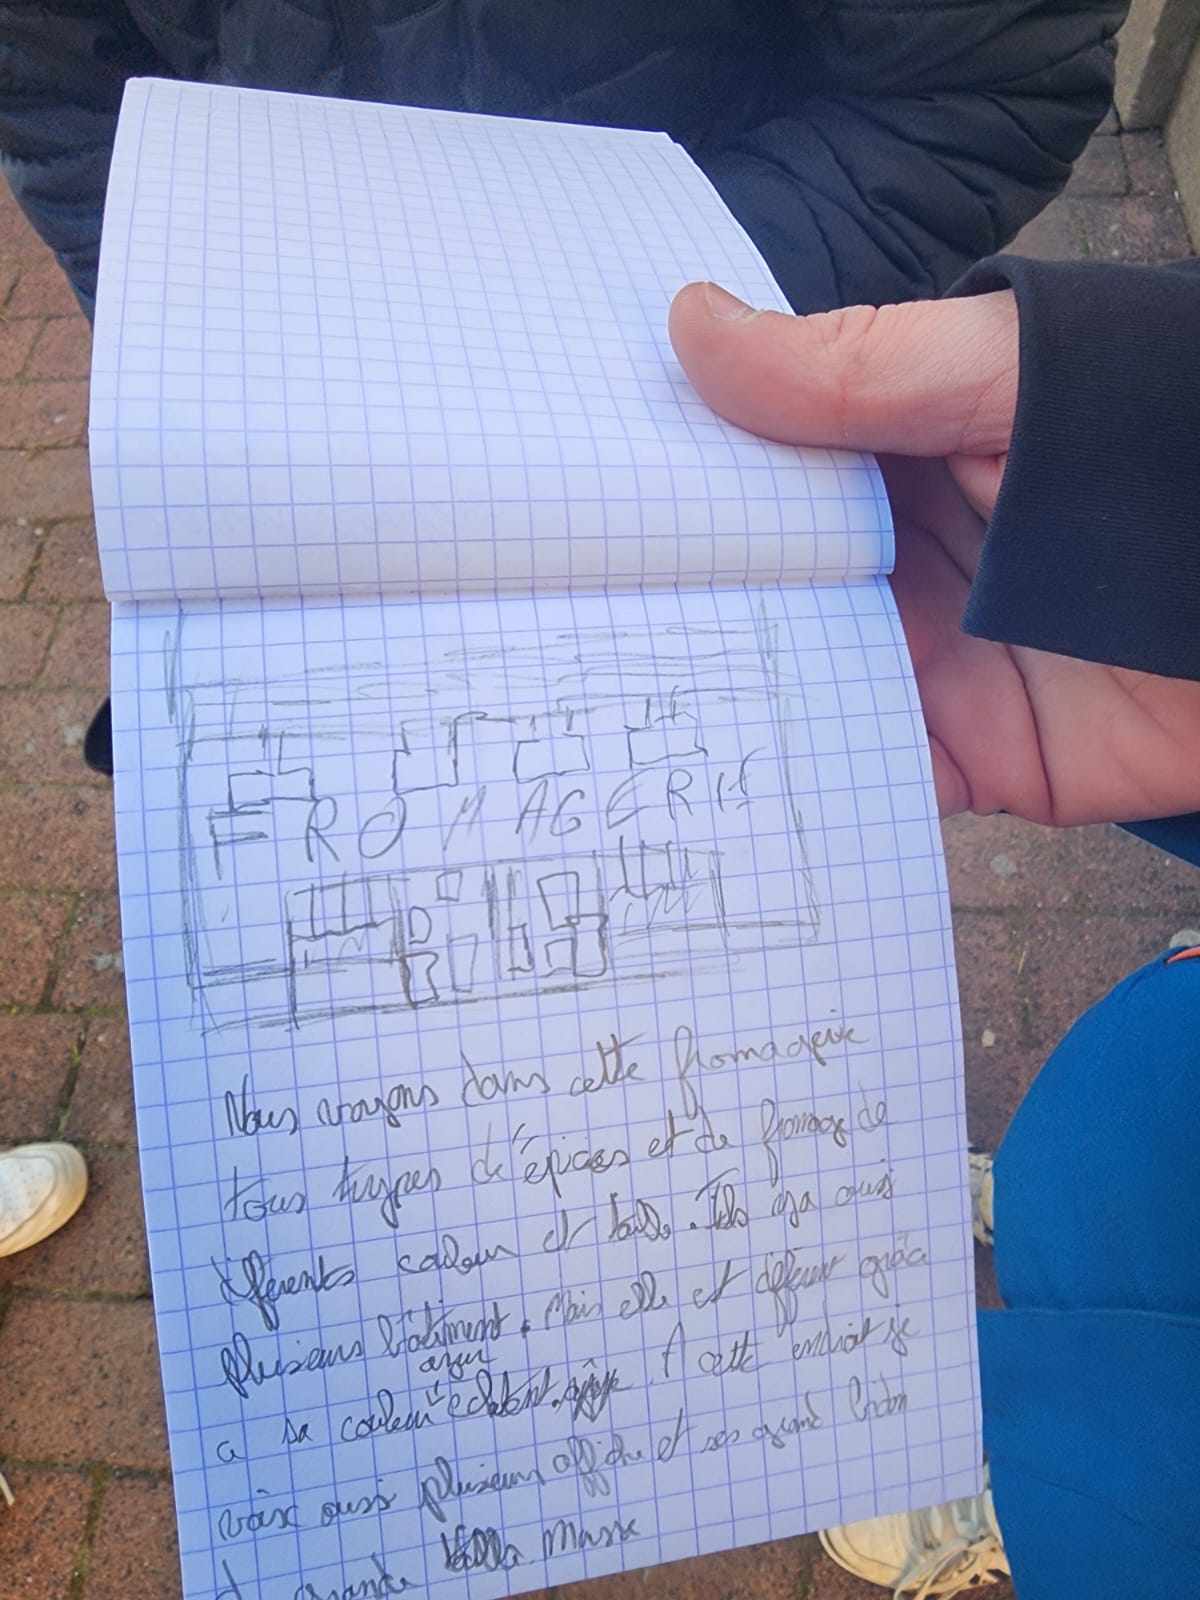 FROMAGERIE
Nous voyons dans cette fromagerie
tous types d'épices et de fromage de
différents couleur et taille. Ils ya aussi
plusieurs bâtiment. Mais elle et déferent grâce
a sa couleur azur éclatant. A cette endroit je
voix aussi plusieurs affiche et ses grand bidon
d grande masse